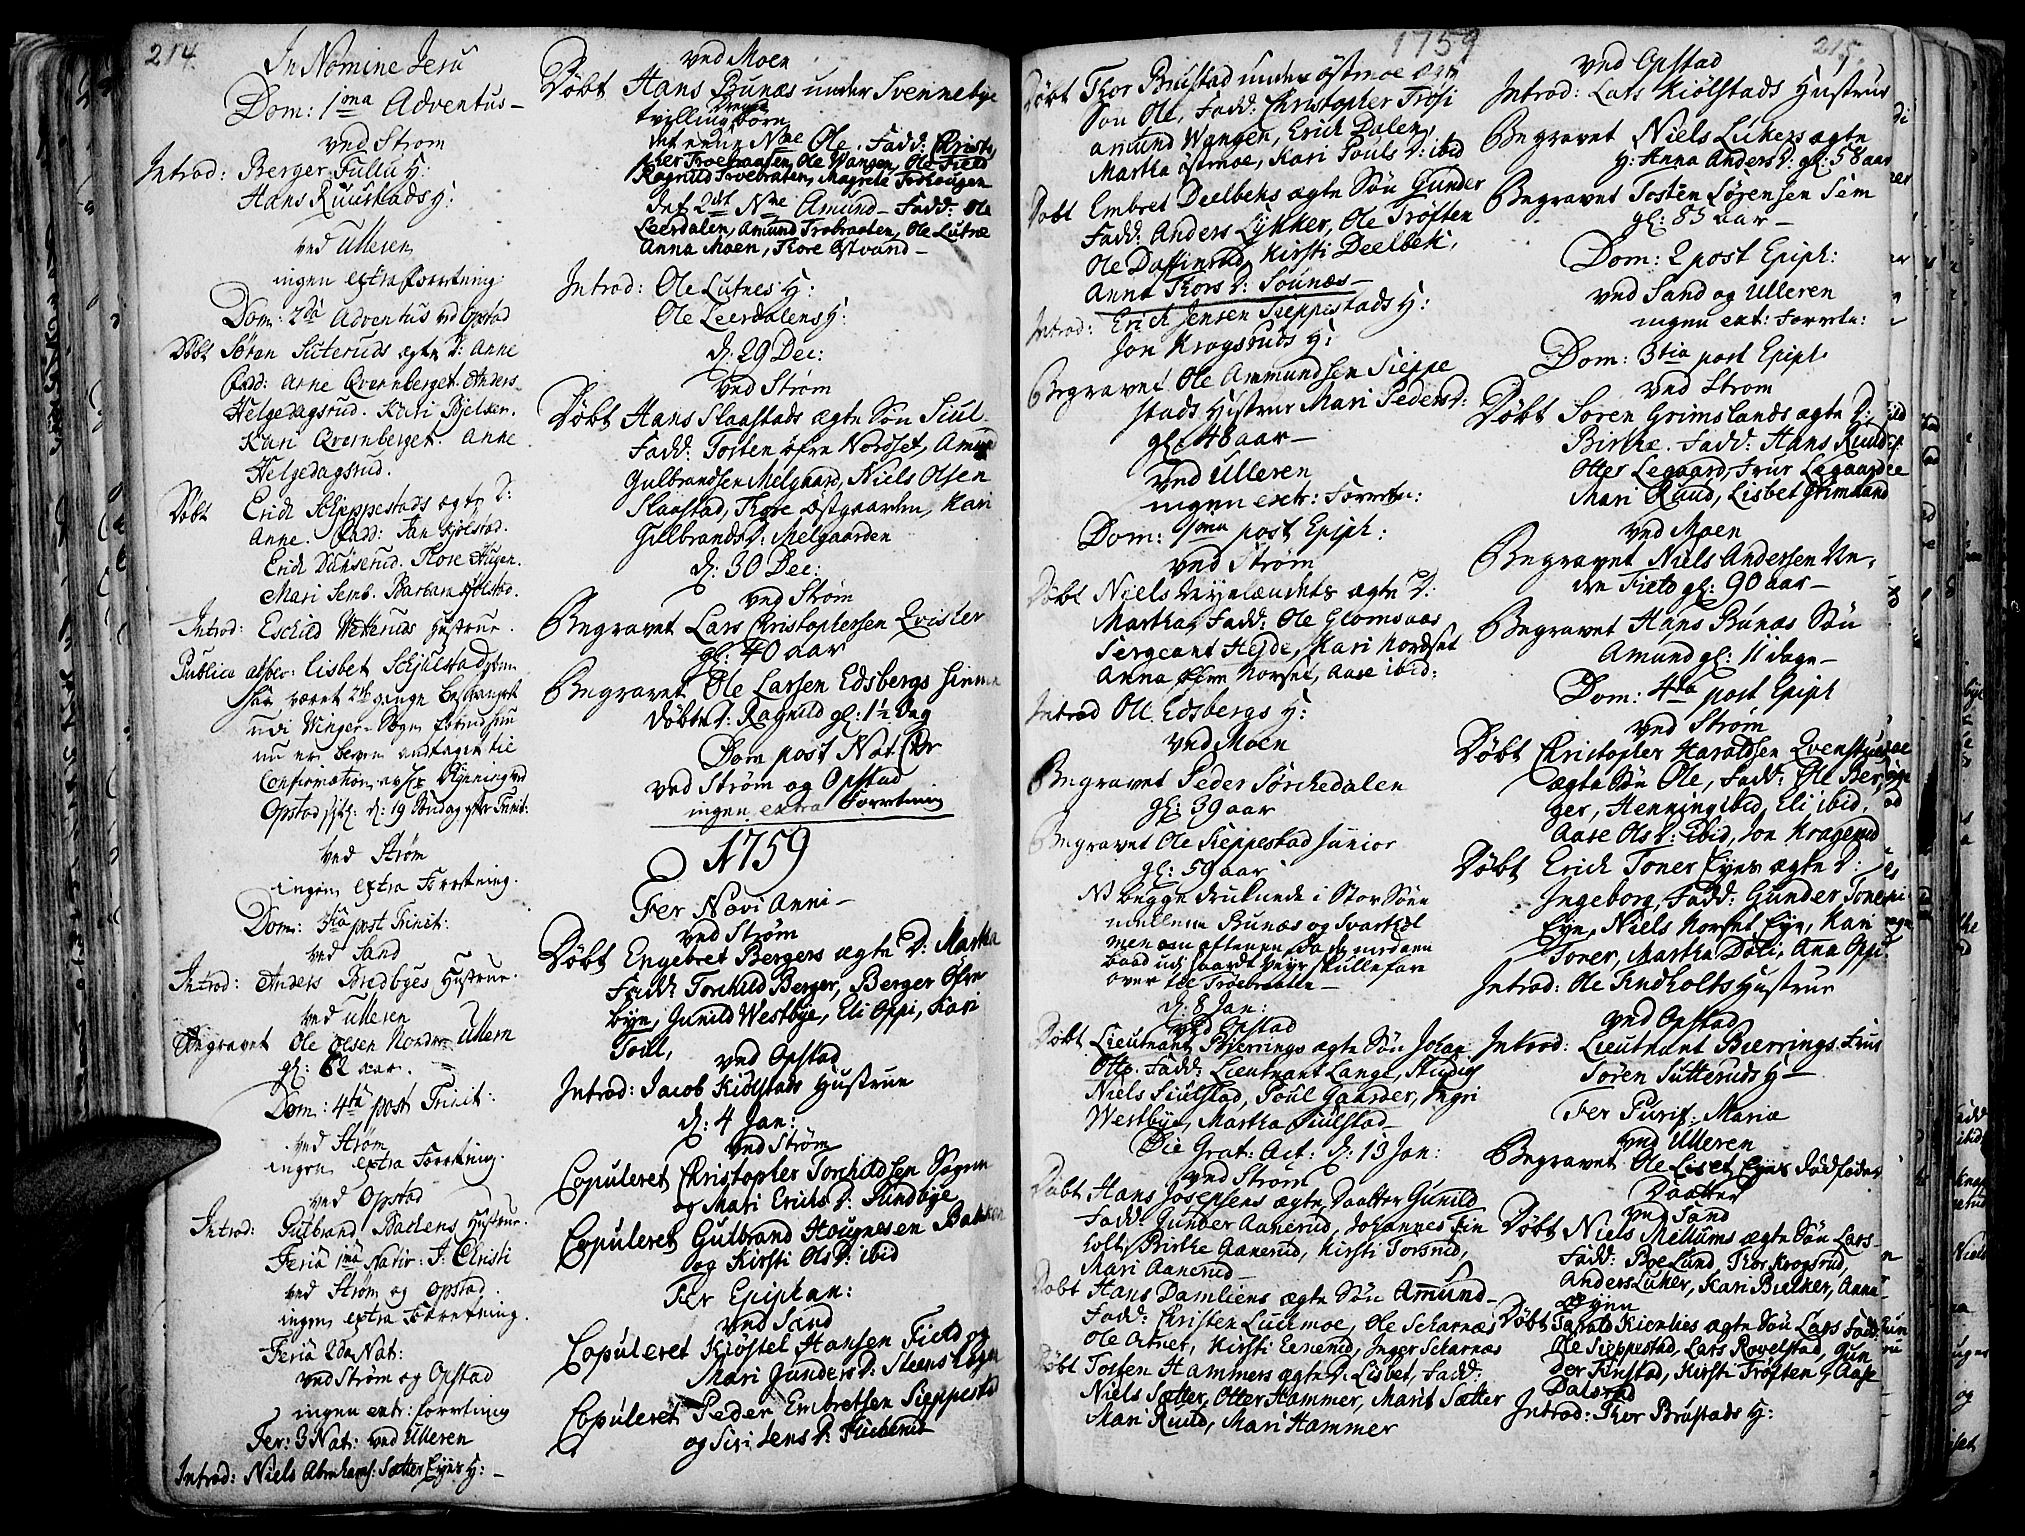 214.
In Nomine Jesu
Dom: 1ma Adventus-
ved Strøm
Introd: Berger Fullu H:
Hans Ruustads H:
ved Ulleren
ingen extra forretning
Dom: 2da Adventus ved Opstad
Døbt Søren Suteruds ægte D: Anne
Fadd: Arne Qvernberget. Anders
Helgedagsrud. Kari
Kari Qvernberget. Anne
Helgedagsrud.
Døbt Erich Scheppestads ægte D:
Anne. Fadd: Jan Kiølstad.
Erich Dunserud. Thore Hugen.
Mari Semb. Barbara Kiølstad.
Introd: Eschild Wetteruds Hustrue.
Publice absolv: Lisbet Schiulstad
været 2de gange
udi Winger Sogn
nu er bleven antagen til
Confirmation
Opstad d: 19 Søndag efter Trinit:
ved Strøm
ingen extra Forretning.
Dom: 3tia post Trinit:
ved Sand
Introd: Anders Bredbyes Hustrue.
ved Ulleren
Begravet Ole Olsen Nordre Ullern
gl: 62 aar.
Dom: 4ta post Trinit:
ved Strøm
ingen extra Forretning.
ved Opstad
Introd: Gulbrand Baclens Hustrue.
Feria 1ma Nativ: J: Christi
ved Strøm og Opstad
ingen extra Forretning.
Feria 2da Nat:
ved Strøm og Opstad
ingen extr: forretning
Fer: 3 Nat: ved Ulleren
Introd: Niels Abrahams: Sætter Eyes H: -
ved Moen
Døbt Hans Bunæs under Svennebye
tvilling børn
det eene Nne Ole. Fadd: Christo
pher Troebraaten, Ole Wangen, Ole Field
Ragnild Troebraten, Magrete Troehougen
det 2det Nne Amund- Fadd: Ole
Leerdalen, Amund Trobraaten, Ole Lutnæ
Anna Moen, Thore Østvand-
Introd: Ole Lutnes H:
Ole Leerdalens H:
d: 29 Dec:
ved Strøm
Døbt Hans Slaastads ægte Søn Siul-
Fadd: Tosten øfre Nordset, Amund
Gulbrandsen Melgaard, Niels Olsen
Slaastad, Thore Østgaarden, Kari
Gulbrands D: Melgaarden
d: 30 Dec:
ved Strøm
Begravet Lars Christophersen Qvisler
gl: 40 aar
Begravet Ole Larsen Edsbergs hiemme
døbte D: Ragnild gl: 1½ Dag
Dom post Nat: Chr
ved Strøm og Opstad
ingen extra Forretning
1759
Fer Novi Anni-
ved Strøm
Døbt Engebret Bergers ægte D: Martha
Fadd: Torchild Berger, Berger Øfre
byen, Gunild Westbye, Eli Oppi, Kari
Toill,
ved Opstad
Introd: Jacob Kiølstads Hustrue
d: 4 Jan:
ved Strøm
Copuleret Christopher Torchildsen Sognn
og Mari Erichs D: Sundbye
Copuleret Gulbrand Haugnesen Bakken
og Kirsti Ols D: ibid
Fer Epiphan:
ved Sand
Copuleret Kiøstel Hansen Field og
Mari Gunders D: Steens Eyen
Copuleret Peder Embretsen Sieppestad
og Siri Jens D:
1759
Døbt Thor Brustad under Østmoe ægte
Søn Ole, Fadd: Christopher Trøsi
Amund Wangen, Erich Dalen,
Martha Østmoe, Kari Pouls D: ibid
Døbt Embret Deelbeks ægte Søn Gunder
Fadd: Anders Lykker, Ole Trøften
Ole Daffinrud, Kirsti Deelbek,
Anna Thors D: Sounæs-
Introd: Erich Jensen Sieppestads H:
Jon Krogsruds H:
Begravet Ole Ammundsen Sieppe
stads Hustrue Mari Peders D:
gl: 48 aar-
ved Ulleren
ingen extr: Forretn:
Dom: 1ma post Epiph:
ved Strøm
Døbt Niels Nynlændets ægte D:
Martha, Fadd: Ole Glomsaas
Sergeant Hejde, Kari Nordset
Anna øfre Norset, Aase ibid:
Introd Oll. Edsbergs H:
ved Moen
Begravet Peder Sørchedalen
gl: 39 aar
Begravet Ole Sieppestad Junior
gl: 59 aar
NB begge druknede i Stor Søen
mellem Bunæs og Svartfos
men om aftenen, da de med een
baad udi haardt veyr skulle fare
over til Trøebraaten-
d: 8 Jan:
ved Opstad
Døbt Lieutnant Bierrings ægte Søn Johan
Otto. Fadd: Lieutnant Lange, Studios
Niels Siulstad, Poul Gaarder, Ingri
Westbye, Martha Siulstad-
Die Grat: Act: d: 13 Jan:
ved Strøm
Døbt Hans Josephsens ægte Daatter Gunild
Fadd: Gunder Aanerud, Johannes Fin
holt, Birthe Aanerud, Kirsti Torsrud,
Mari Aanerud-
Døbt Hans Damliens ægte Søn Amund-
Fadd: Christen Luckmoe, Ole Scharnæs
Ole Arnet, Kirsti Eenerud, Inger Scharnæs
Døbt Tosten Hammers ægte D: Lisbet, Fadd:
Niels Sætter, Otter Hammer, Marit Sætter
Mari Ruud, Mari Hammer
215.
ved Opstad
Introd: Lars Kiølstads Hustrue
Begravet Niels Likers ægte
H: Anna Anders D: gl: 58 aar
Begravet Tosten Sørensen Sem
gl: 83 aar-
Dom: 2 post Epiph:
ved Sand og Ulleren
ingen ext: Forretn:
Dom: 3tia post Epiph
ved Strøm
Døbt Søren Grimslands ægte D:
Birthe. Fadd: Hans Ruud,
Otter Legaard, Frue Lægaard
Mari Ruud, Lisbet Grimsland
ved Moen
Begravet Niels Andersen Ne-
dre Field gl: 90 aar-
Begravet Hans Bunæs Søn
Amund gl: 11 dage-
Dom: 4ta post Epiph
ved Strøm
Døbt Christopher Haraldsen Qvenstue
ægte Søn Ole, Fadd: Ole Ber
ger, Henning ibid, Eli ibid,
Aase Ols D: ibid, Jon Kragerud
Døbt Erich Toner Eyes ægte D:
Ingeborg, Fadd: Gunder Toner
Eye, Niels Norset Eye, Kari
Toner, Martha Døli, Ana Oppi
Introd: Ole Findholts Hustrue
ved Opstad
Introd: Lieutnant Bierrings Frue
Søren Sutteruds H-
Fer Purif: Mariæ
ved Ulleren
Begravet Ole Liset Eyes dødføder
Daatter
ved Sand
Døbt Niels Mellums ægte Søn Lars-
Fadd: Poe Lund, Thor Krogsrud,
Anders Luker, Kari Bielker, Anna
Byen
Døbt Harald Kienlies ægte Søn Lars Fadd:
Ole Sieppestad, Lars Rovelstad, Gun
der Finstad, Kirsti Trøften, Aase
Dalsrud
Introd: Thor Brustads H: